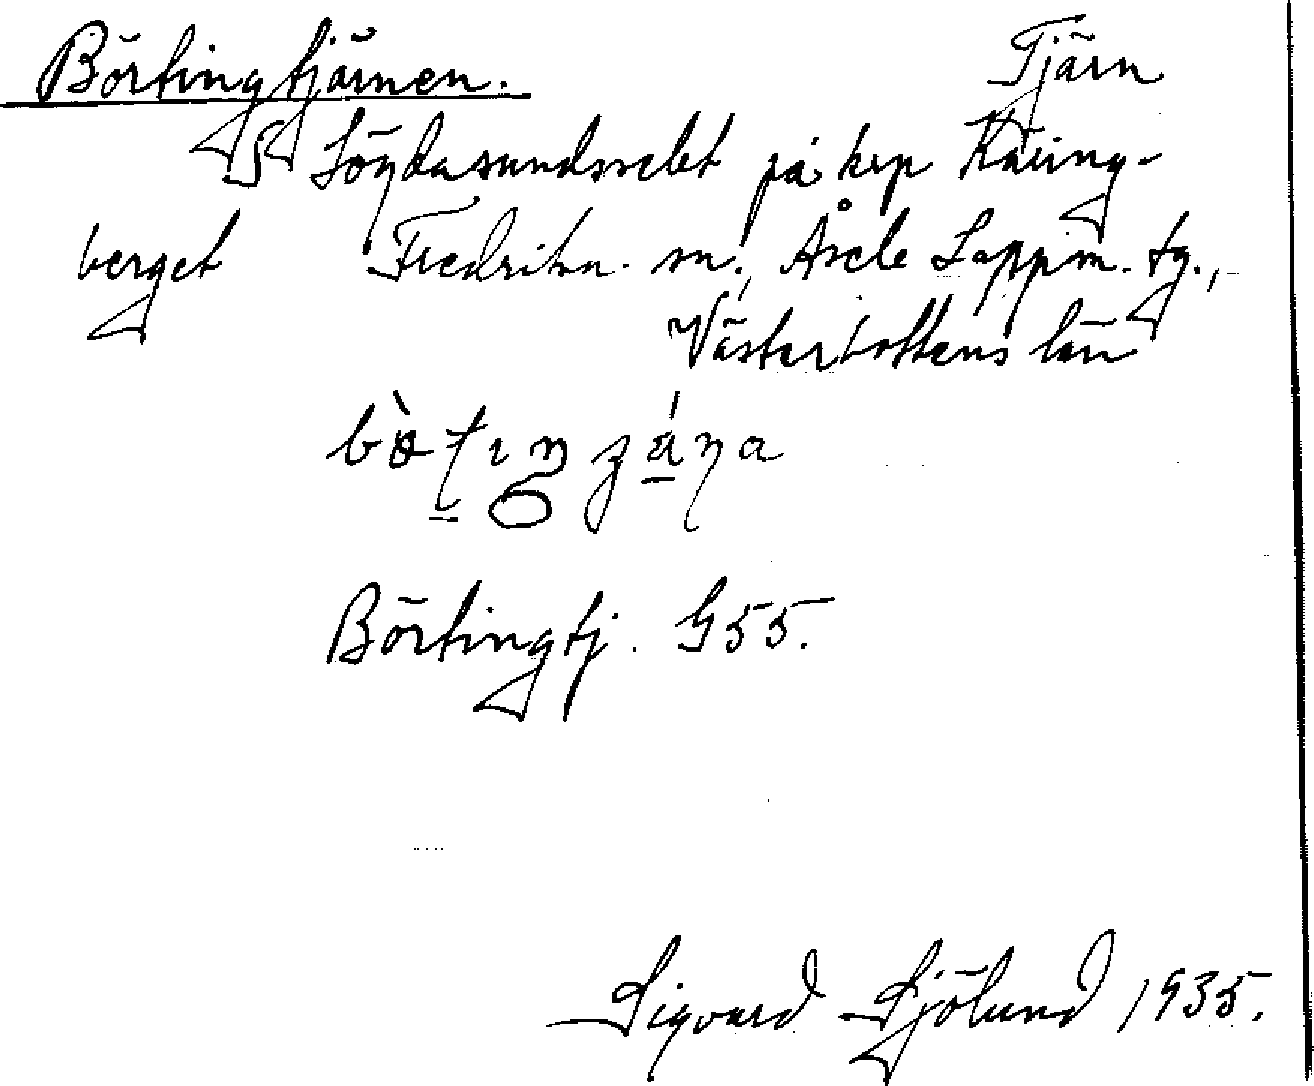 Börtingtjärnen. Tjärn
Lögdasundsselet på krp Käring-
berget Fredrika sn., Åsele Lappm. tg.,
Västerbottens län
Börtingtj. G55.
Sigvard Sjölund 1935.